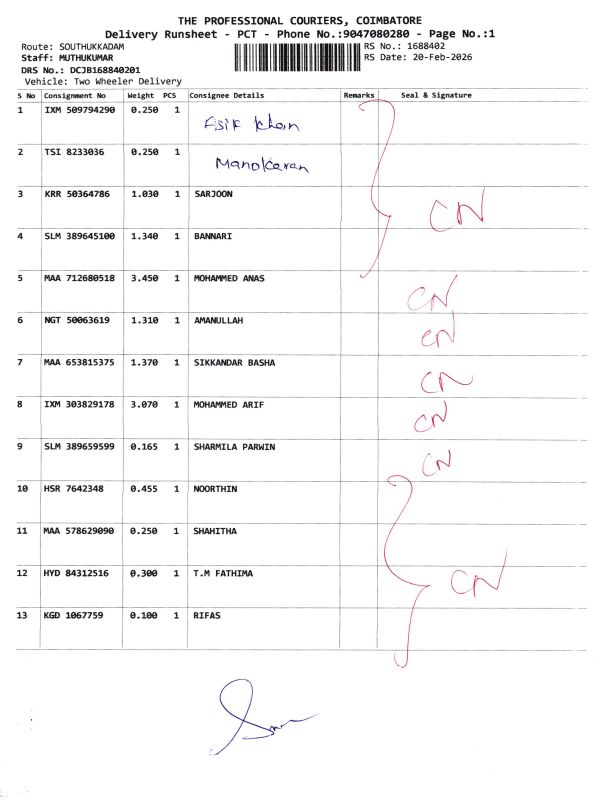 THE PROFESSIONAL COURIERS, COIMBATORE
Delivery Runsheet - PCT - Phone No.:9047080280 - Page No.:1
Route: SOUTHUKKADAM RS No.: 1688402
Staff: MUTHUKUMAR RS Date: 20-Feb-2026
DRS No.: DCJB168840201
Vehicle: Two Wheeler Delivery
S No Consignment No Weight PCS Consignee Details Remarks Seal & Signature
1 IXM 509794290 0.250 1 Asif khan
2 TSI 8233036 0.250 1 Manokaran
3 KRR 50364786 1.030 1 SARJOON CN
4 SLM 389645100 1.340 1 BANNARI
5 MAA 712680518 3.450 1 MOHAMMED ANAS CN
6 NGT 50063619 1.310 1 AMANULLAH CN
7 MAA 653815375 1.370 1 SIKKANDAR BASHA CN
8 IXM 303829178 3.070 1 MOHAMMED ARIF CN
9 SLM 389659599 0.165 1 SHARMILA PARWIN CN
10 HSR 7642348 0.455 1 NOORTHIN
11 MAA 578629090 0.250 1 SHAHITHA
12 HYD 84312516 0.300 1 T.M FATHIMA CN
13 KGD 1067759 0.100 1 RIFAS